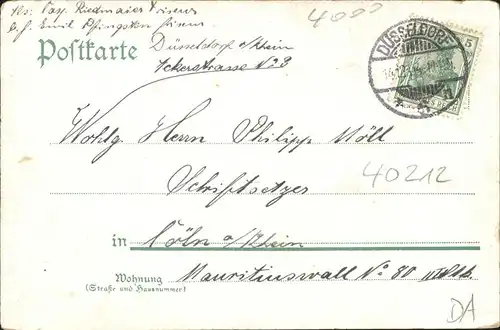 Abs: Casp. Riedmaier
b. f. Emil Pfingsten
4000
Postkarte Düsseldorf a/Rhein
Ackerstrasse No 8.
DÜSSELDORF
5
Wohlg. Herrn Philipp Möll
Schriftsetzer
40212
in Cöln a/Rhein
Wohnung Mauritiuswall No 80
(Straße und Hausnummer)
DA